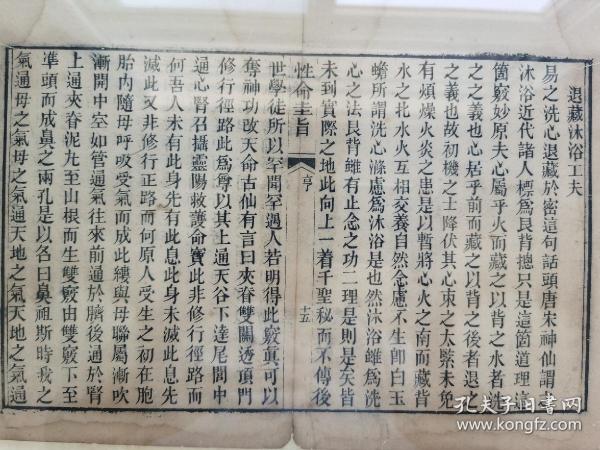 退藏沐浴工夫
易之洗心退藏於密這句話頭唐宋神仙謂之
沐浴近代諸人標爲艮背總只是這箇道理這
箇竅妙原夫心屬乎火而藏之以背之水者洗
之之義也心居乎前而藏之以背之後者退之
之義也故初機之士降伏其心束之太緊未免
有煩燥火炎之患是以暫將心火之南而藏背
水之北水火互相交養自然念慮不生卽白玉
蟾所謂洗心滌慮爲沐浴是也然沐浴雖爲洗
心之法艮背雖有止念之功二理是則是矣皆
未到實際之地此向上一着千聖秘而不傳後
性命圭旨
亨
十五
世學徒所以罕聞罕遇人若明得此竅眞可以
奪神功改天命古仙有言曰夾脊雙關透頂門
修行徑路此爲尊以其上通天谷下達尾閭中
通心腎召攝靈陽救護命寶此非修行徑路而
何吾人未有此身先有此息此身未滅此息先
滅此又非修行正路而何原人受生之初在胞
胎內隨母呼吸受氣而成此縷與母聯屬漸吹
漸開中空如管通氣往來前通於臍後通於腎
上通夾脊泥丸至山根而生雙竅由雙竅下至
準頭而成鼻之兩孔是以名曰鼻祖斯時我之
氣通母之氣母之氣通天地之氣天地之氣通
孔夫子旧书网
www.kongfz.com